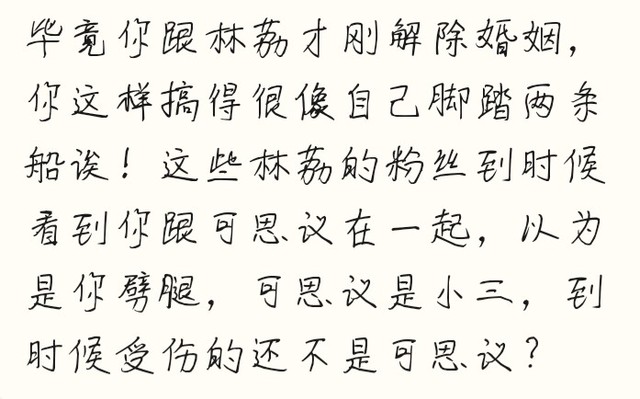 毕竟你跟林荔才刚解除婚姻，
你这样搞得很像自己脚踏两条
船诶！这些林荔的粉丝到时候
看到你跟可思议在一起，以为
是你劈腿，可思议是小三，到
时候受伤的还不是可思议？